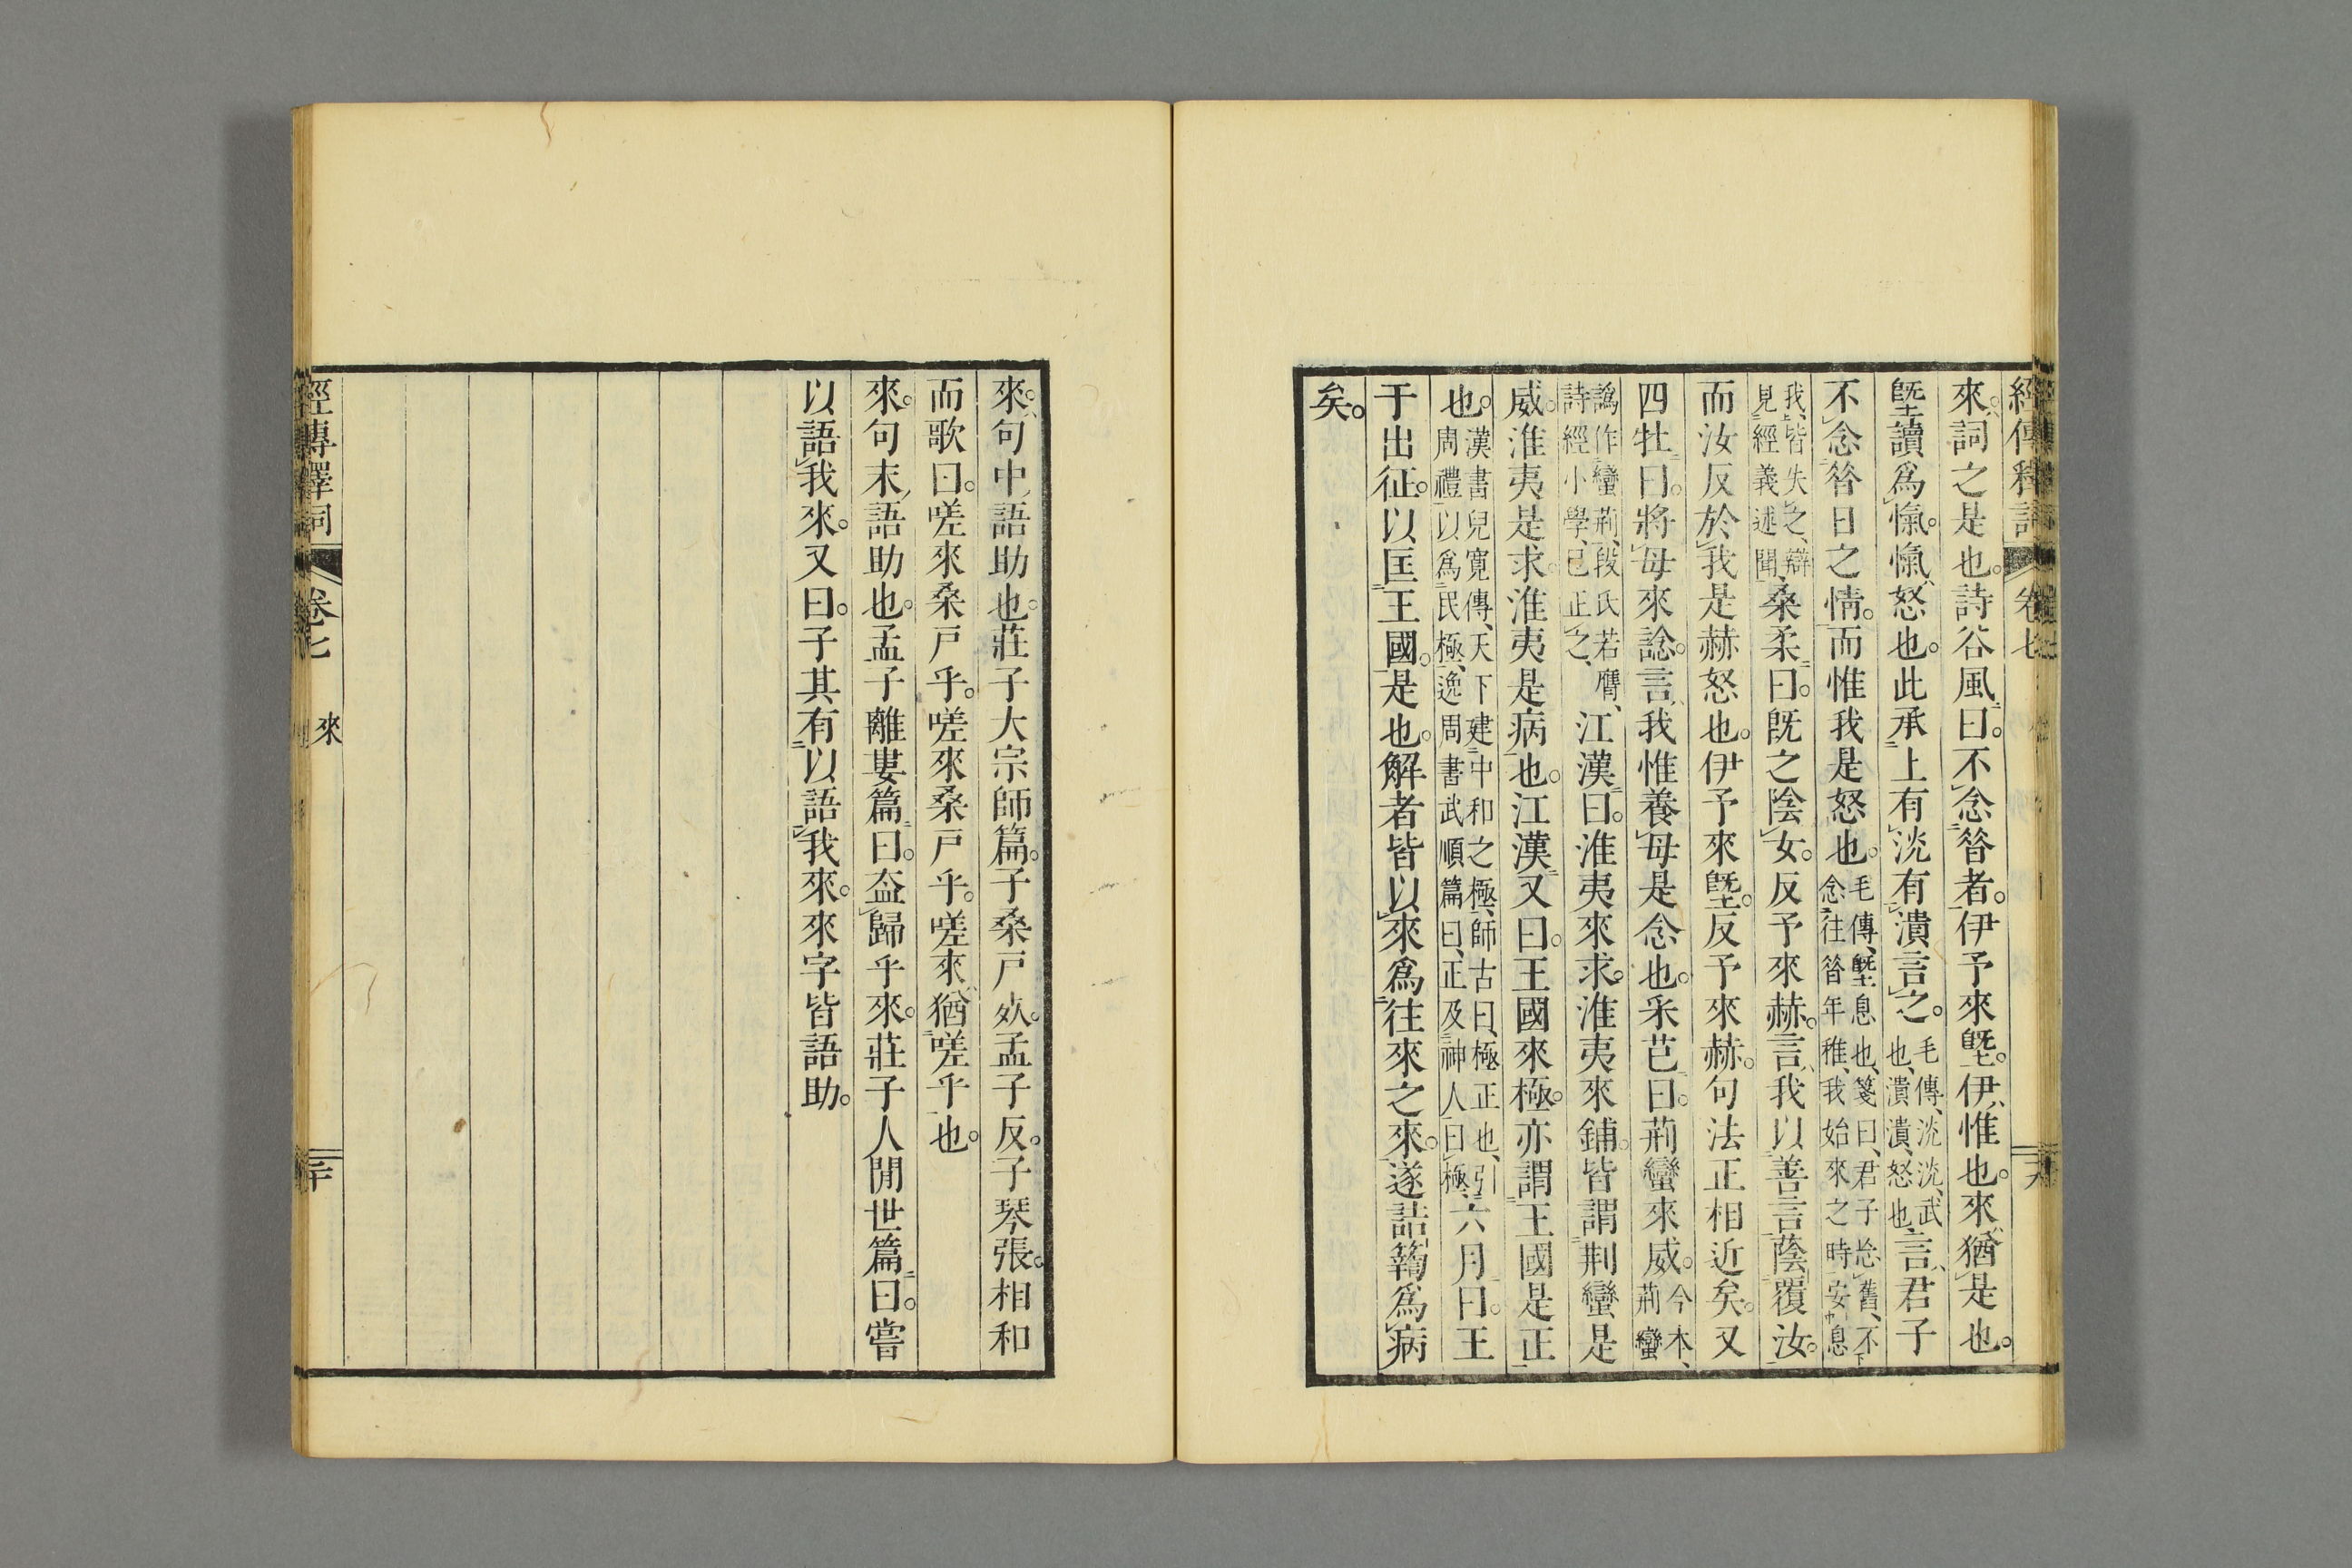 經傳釋詞　卷七
來。詞之是也。詩谷風曰。不念昝者。伊予來墍。伊、惟也。來、猶是也。
墍讀爲愾。愾、怒也。此承上有洸有潰言之。毛傳、洸洸、武也、潰潰、怒也、言、君子
不念昝日之情。而惟我是怒也。毛傳、墍息也、箋曰、君子忘舊、不念往昝年稚、我始來之時安息
我、皆失之、辯見經義述聞、桑柔曰。旣之陰女。反予來赫。言、我以善言蔭覆汝。
而汝反於我是赫怒也。伊予來墍。反予來赫。句法正相近矣。又
四牡曰。將母來諗。言、我惟養母是念也。采芑曰。荊蠻來威。今本、荊蠻
譌作蠻荊、段氏若膺、詩經小學、已正之、江漢曰。淮夷來求。淮夷來鋪。皆謂荊蠻、是
威。淮夷是求。淮夷是病也。江漢又曰。王國來極。亦謂王國是正
也。漢書兒寬傳、天下建中和之極、師古曰、極正也、引周禮以爲民極、逸周書武順篇曰、正及神人曰極、六月曰。王
于出征。以匡王國。是也。解者皆以來爲往來之來。遂詰爲病
矣。
來。句中語助也。莊子大宗師篇。子桑戶死。孟子反。子琴張。相和
而歌曰。嗟來桑戶乎。嗟來桑戶乎。嗟來、猶嗟乎也。
來。句末語助也。孟子離婁篇曰。盍歸乎來。莊子人閒世篇曰。嘗
以語我來。又曰。子其有以語我來。來字皆語助。
經傳釋詞　卷七　來　二十